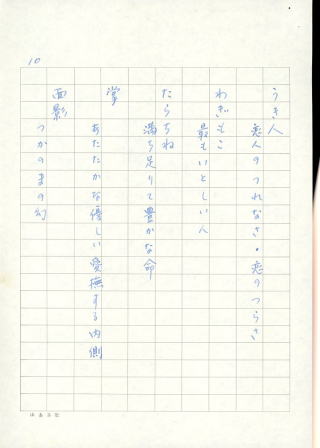 10
うき人
恋人のつれなさ・恋のつらさ
わぎもこ
最もいとしい人
たらちね
満ち足りて豊かな命
掌
あたたかな優しい愛撫する内側
面影
つかのまの幻